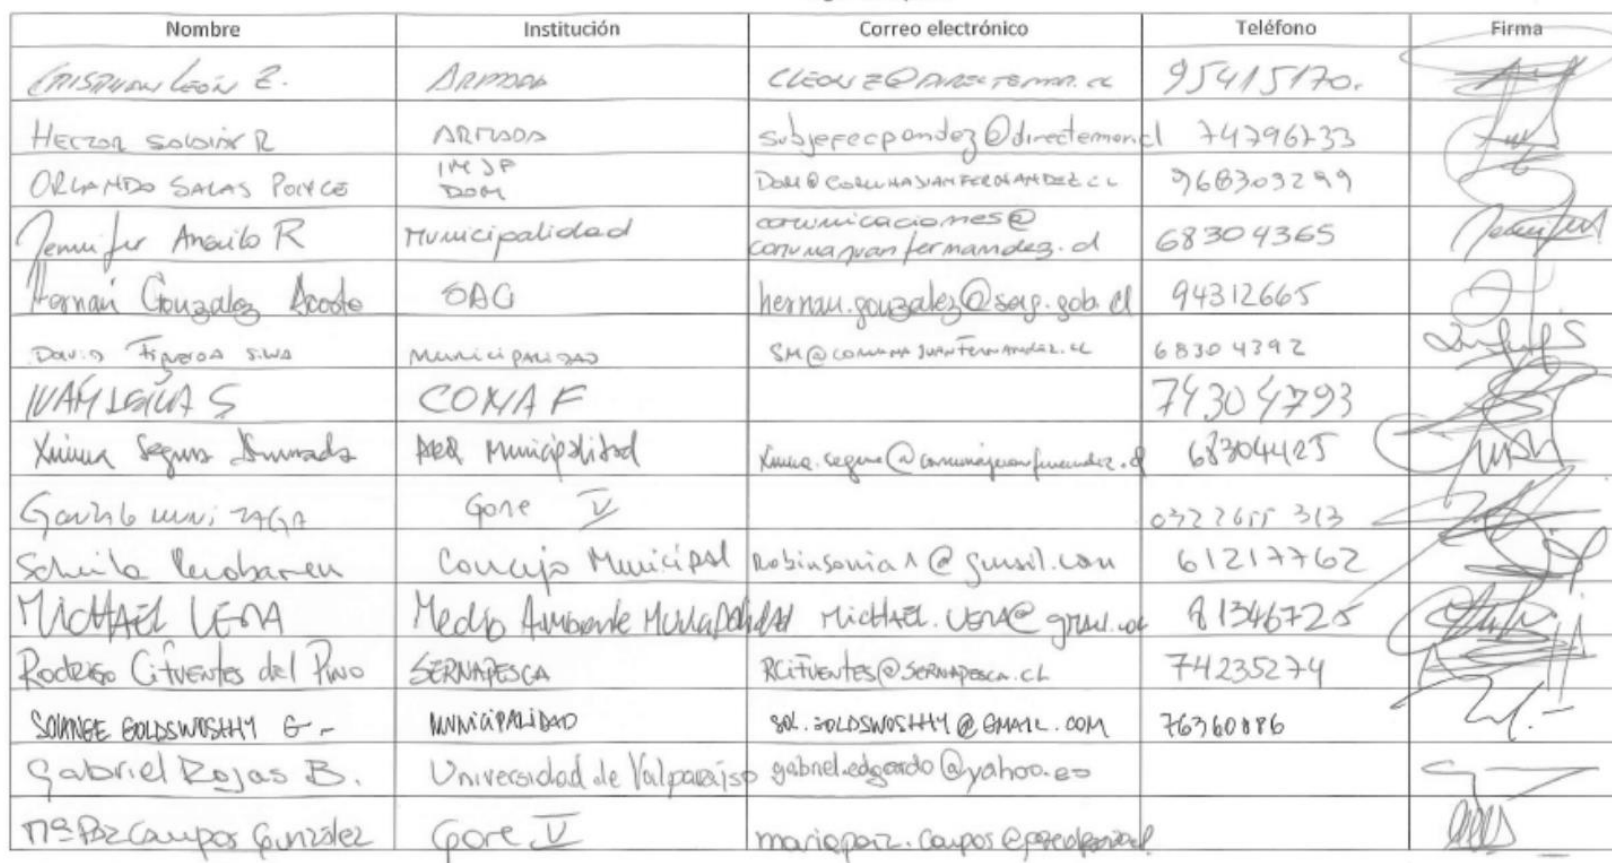 Nombre Institución Correo electrónico Teléfono Firma
CRISTHIAN LEÓN Z. ARMADA CLEONZ@DIRECTEMAR.CL 95415170.
HECTOR R ARMADA subjefecpandez@directemar.cl 74796733
IM JF
ORLANDO SALAS PONCE DOM DOM@COMUNAJUANFERNANDEZ.CL 968303299
Jennifer R Municipalidad comunicaciones@
comunajuanfernandez.cl 68304365
Hernán González Acosta SAG hernan.gonzalez@sag.gob.cl 94312665
David Figueroa MUNICIPALIDAD SM@COMUNAJUANFERNANDEZ.CL 68304392
IVAN LEIVA S CONAF 74304793
Ximena Segura Municipalidad Ximena.segura@comunajuanfernandez.cl 68304425
Gonzalo MUNIZAGA Gore V 0322655313
Concejo Municipal Robinsonia1@gmail.com 61217762
MICHAEL VERA Medio Ambiente Municipalidad MICHAEL.VERA@gmail.com 81346725
Rodrigo Cifuentes del Pino SERNAPESCA RCIFUENTES@SERNAPESCA.CL 74235274
SOLANGE GOLDSWOSTHY G.- MUNICIPALIDAD SOL.GOLDSWOSTHY@GMAIL.COM 76360886
Gabriel Rojas B. Universidad de Valparaíso gabriel.edgardo@yahoo.es
Mª Paz Campos González Gore V